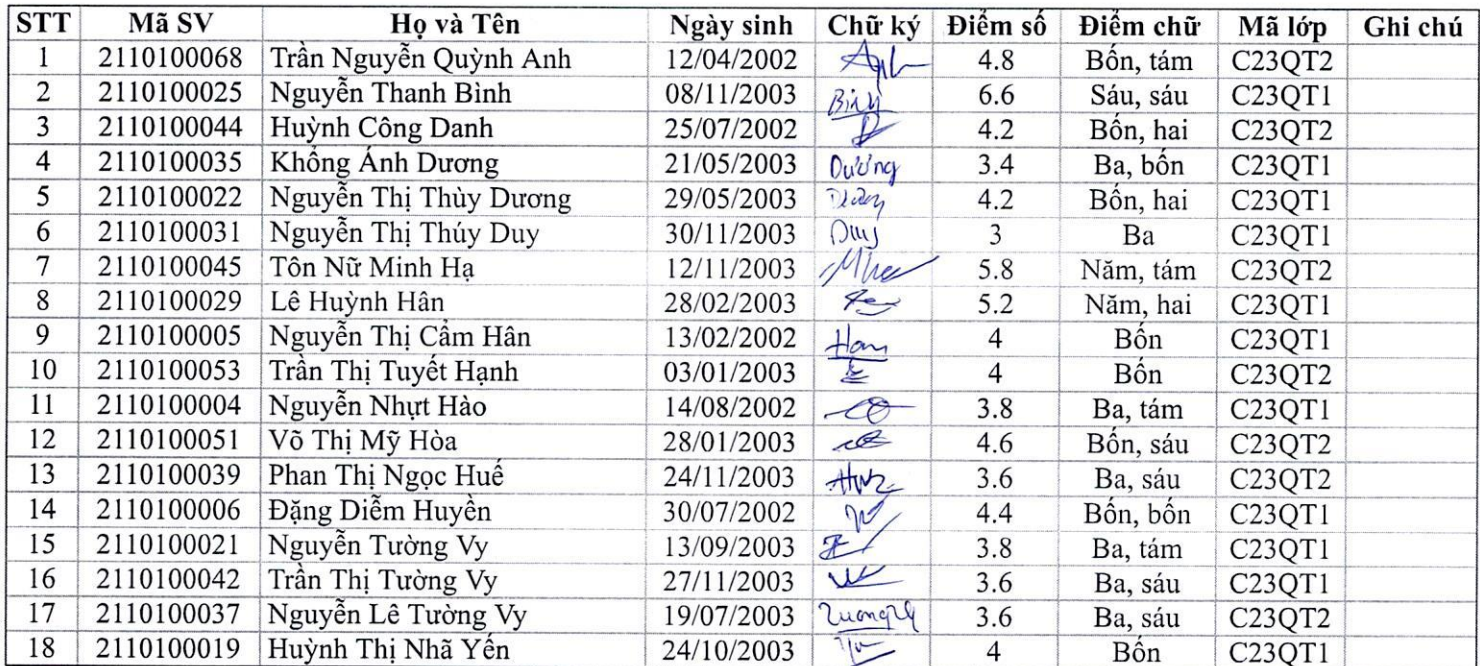 STT Mã SV Họ và Tên Ngày sinh Chữ ký Điểm số Điểm chữ Mã lớp Ghi chú
1 2110100068 Trần Nguyễn Quỳnh Anh 12/04/2002 4.8 Bốn, tám C23QT2
2 2110100025 Nguyễn Thanh Bình 08/11/2003 Bình 6.6 Sáu, sáu C23QT1
3 2110100044 Huỳnh Công Danh 25/07/2002 4.2 Bốn, hai C23QT2
4 2110100035 Khổng Ánh Dương 21/05/2003 Dương 3.4 Ba, bốn C23QT1
5 2110100022 Nguyễn Thị Thùy Dương 29/05/2003 4.2 Bốn, hai C23QT1
6 2110100031 Nguyễn Thị Thúy Duy 30/11/2003 Duy 3 Ba C23QT1
7 2110100045 Tôn Nữ Minh Hạ 12/11/2003 5.8 Năm, tám C23QT2
8 2110100029 Lê Huỳnh Hân 28/02/2003 5.2 Năm, hai C23QT1
9 2110100005 Nguyễn Thị Cẩm Hân 13/02/2002 Han 4 Bốn C23QT1
10 2110100053 Trần Thị Tuyết Hạnh 03/01/2003 4 Bốn C23QT2
11 2110100004 Nguyễn Nhựt Hào 14/08/2002 3.8 Ba, tám C23QT1
12 2110100051 Võ Thị Mỹ Hòa 28/01/2003 4.6 Bốn, sáu C23QT2
13 2110100039 Phan Thị Ngọc Huế 24/11/2003 3.6 Ba, sáu C23QT2
14 2110100006 Đặng Diễm Huyền 30/07/2002 4.4 Bốn, bốn C23QT1
15 2110100021 Nguyễn Tường Vy 13/09/2003 3.8 Ba, tám C23QT1
16 2110100042 Trần Thị Tường Vy 27/11/2003 3.6 Ba, sáu C23QT1
17 2110100037 Nguyễn Lê Tường Vy 19/07/2003 3.6 Ba, sáu C23QT2
18 2110100019 Huỳnh Thị Nhã Yến 24/10/2003 4 Bốn C23QT1